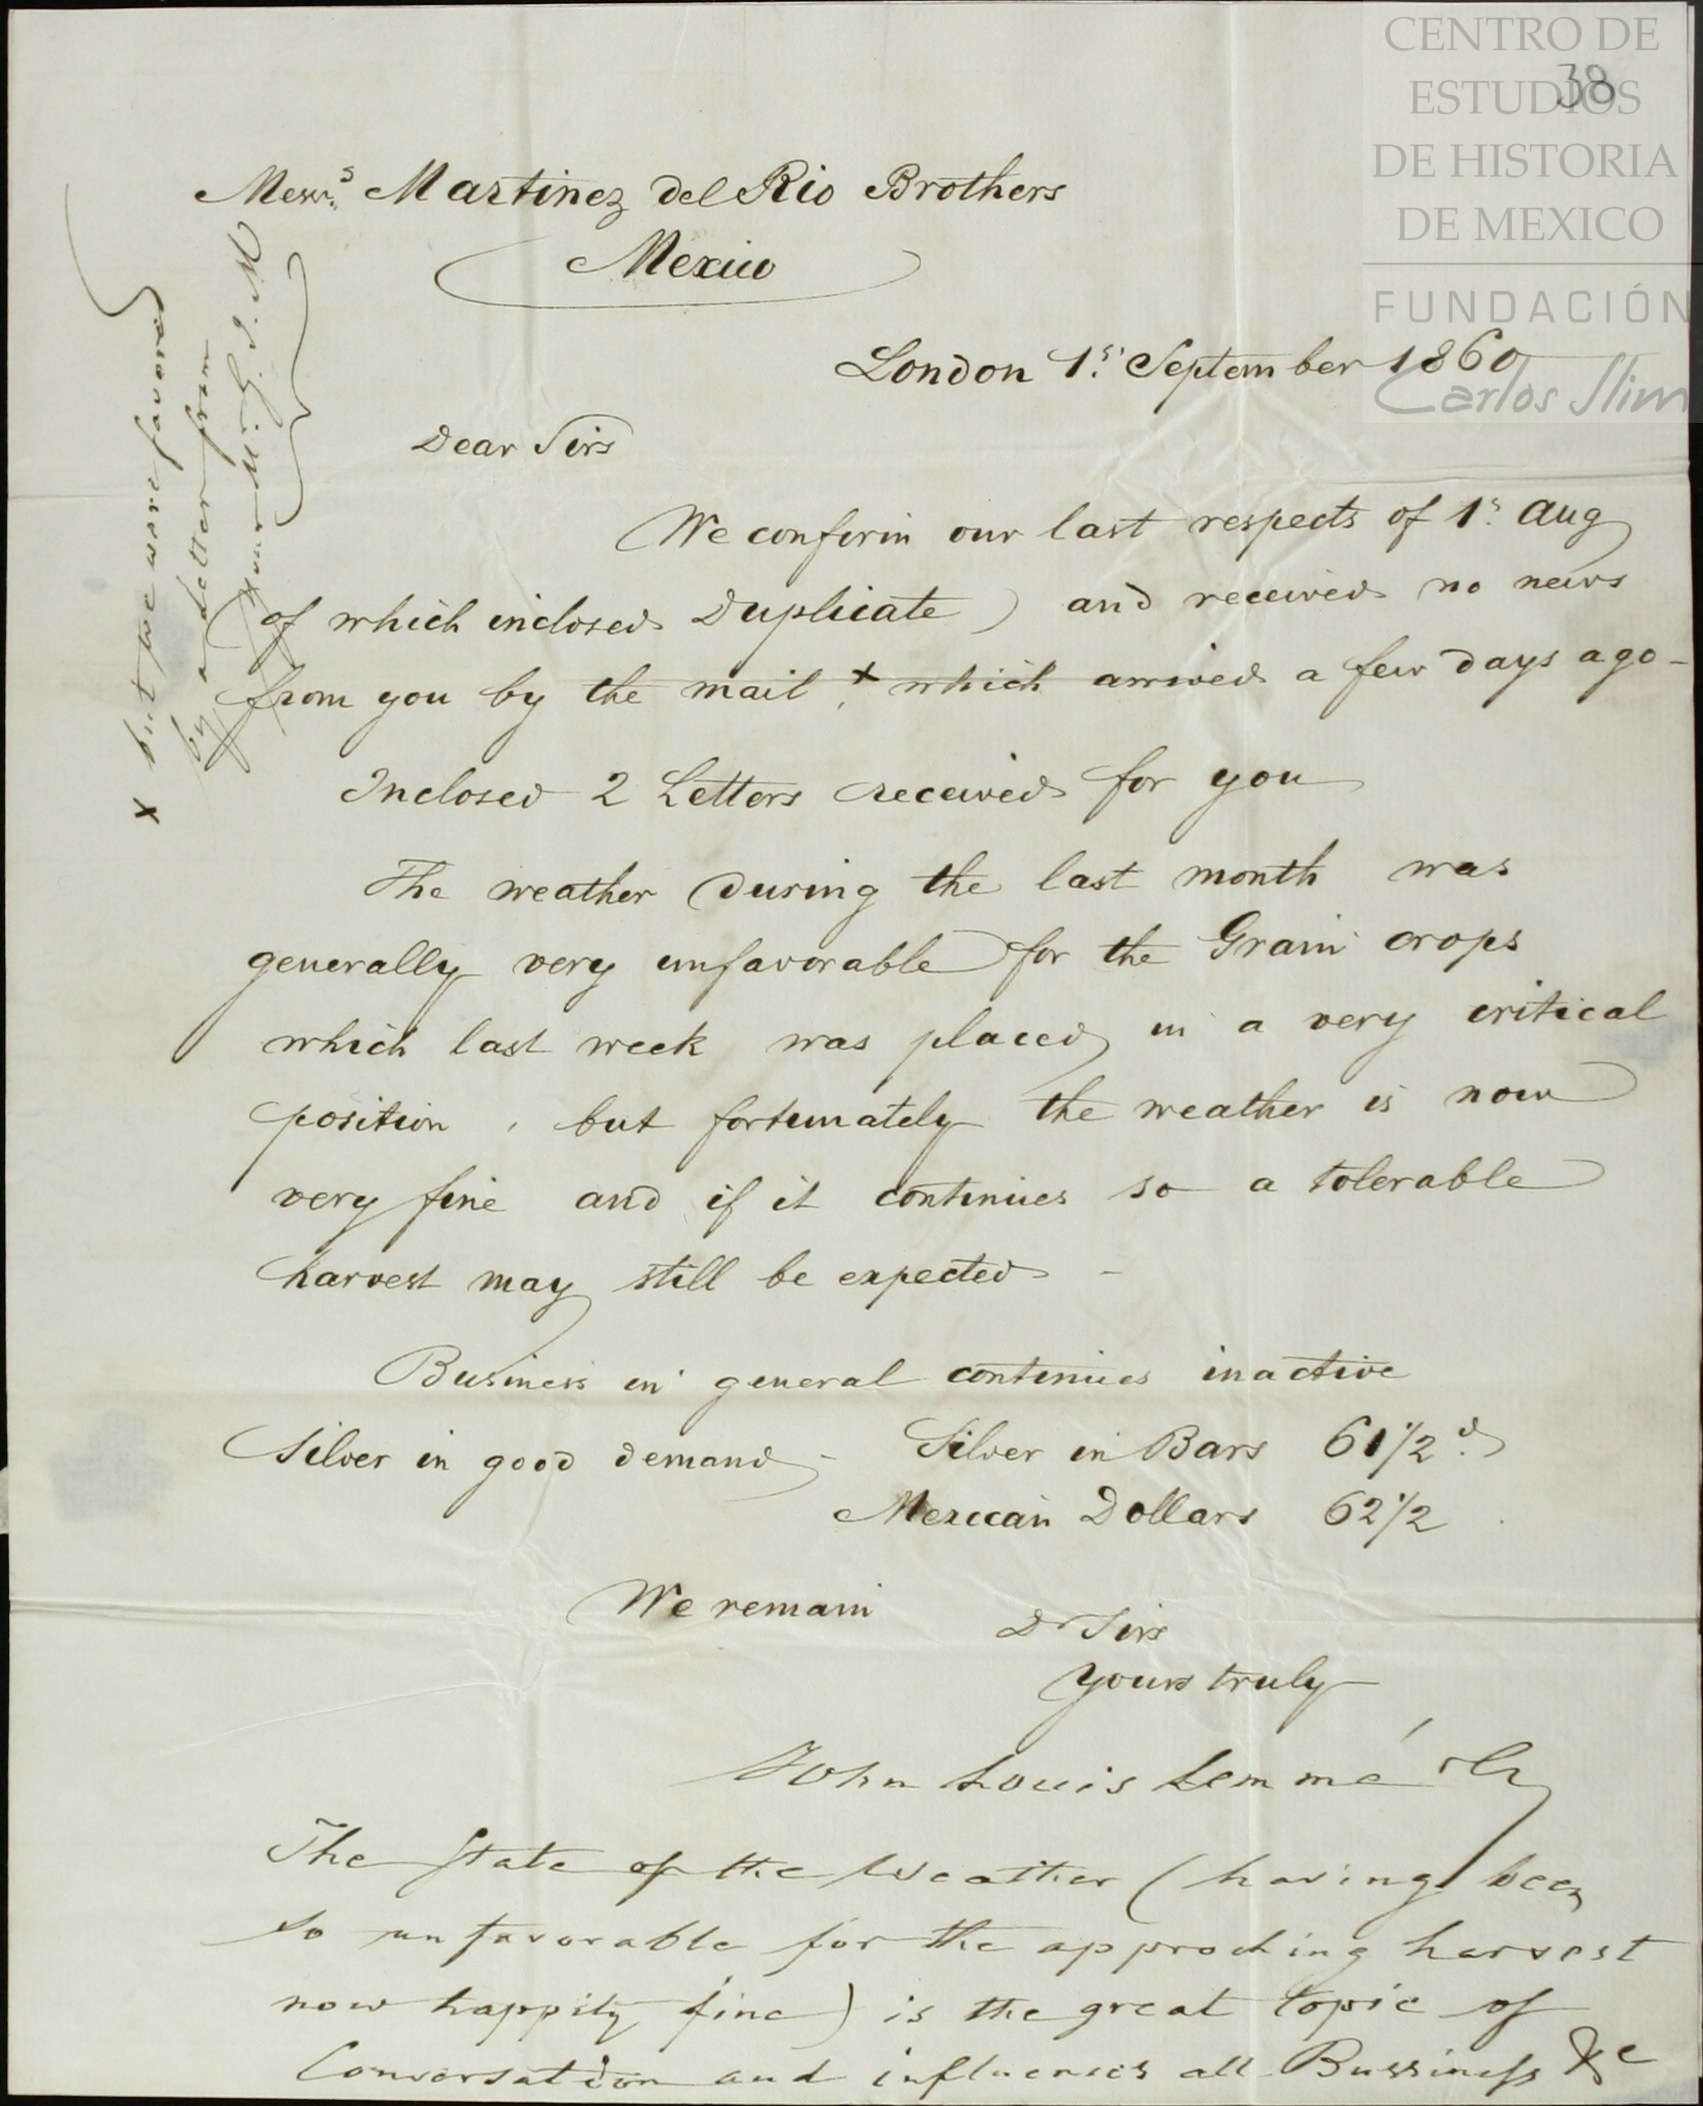 CENTRO DE
ESTUDIOS
DE HISTORIA
DE MEXICO
FUNDACIÓN
Carlos Slim
38
Messrs Martinez del Rio Brothers
Mexico
London 1st September 1860
Dear Sirs
We confirm our last respects of 1st Aug
(of which inclosed Duplicate) and received no news
from you by the mail, x which arrived a few days ago -
Inclosed 2 Letters received for you
The weather during the last month was
generally very unfavorable for the Grain crops
which last week was placed in a very critical
position, but fortunately the weather is now
very fine and if it continues so a tolerable
harvest may still be expected -
Business in general continues inactive
Silver in good demand - Silver in Bars 61 1/2 d
Mexican Dollars 62 1/2
We remain
Dr Sirs
Yours truly
John Louis Lemmé & Co
The State of the Weather (having been
so unfavorable for the approching harvest
now happily fine) is the great topic of
Conversation and influences all Bussiness &c
x but we were favored
by a letter from
your Mr. G. J. M